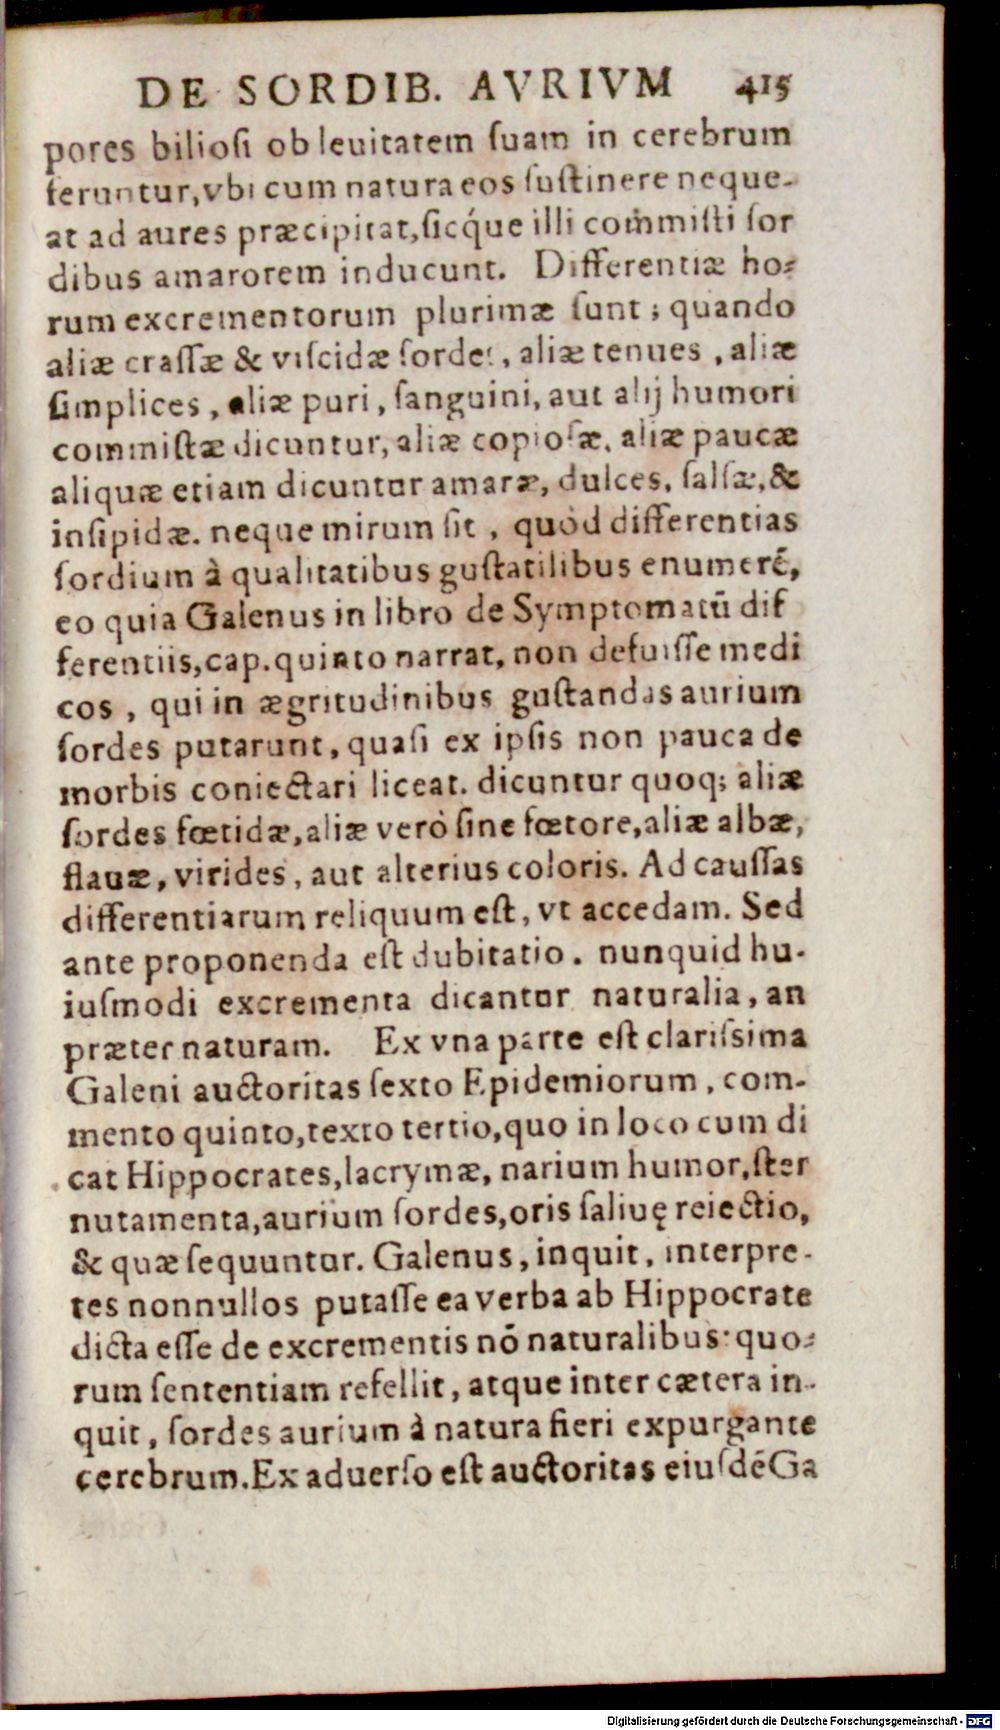 DE SORDIB. AVRIVM 415
pores biliosi ob leuitatem suam in cerebrum
feruntur, vbi cum natura eos sustinere neque-
at ad aures præcipitat, sicq́ue illi com̄misti sor
dibus amarorem inducunt. Differentiæ ho-
rum excrementorum plurimæ sunt; quando
aliæ crassæ & viscidæ sordes, aliæ tenues, aliæ
simplices, aliæ puri, sanguini, aut alij humori
commistæ dicuntur, aliæ copiosæ, aliæ paucæ
aliquæ etiam dicuntur amaræ, dulces, salsæ, &
insipidæ. neque mirum sit, quòd differentias
sordium à qualitatibus gustatilibus enumerē,
eo quia Galenus in libro de Symptomatū dif
ferentiis, cap. quinto narrat, non defuisse medi
cos, qui in ægritudinibus gustandas aurium
sordes putarunt, quasi ex ipsis non pauca de
morbis coniectari liceat. dicuntur quoq; aliæ
sordes fœtidæ, aliæ verò sine fœtore, aliæ albæ,
flauæ, virides, aut alterius coloris. Ad caussas
differentiarum reliquum est, vt accedam. Sed
ante proponenda est dubitatio. nunquid hu-
iusmodi excrementa dicantur naturalia, an
præter naturam. Ex vna parte est clarissima
Galeni auctoritas sexto Epidemiorum, com-
mento quinto, texto tertio, quo in loco cum di
cat Hippocrates, lacrymæ, narium humor, ster
nutamenta, aurium sordes, oris saliuę reiectio,
& quæ sequuntur. Galenus, inquit, interpre-
tes nonnullos putasse ea verba ab Hippocrate
dicta esse de excrementis nō naturalibus: quo-
rum sententiam refellit, atque inter cætera in-
quit, sordes aurium à natura fieri expurgante
cerebrum. Ex aduerso est auctoritas eiusdē Ga
Digitalisierung gefördert durch die Deutsche Forschungsgemeinschaft - DFG